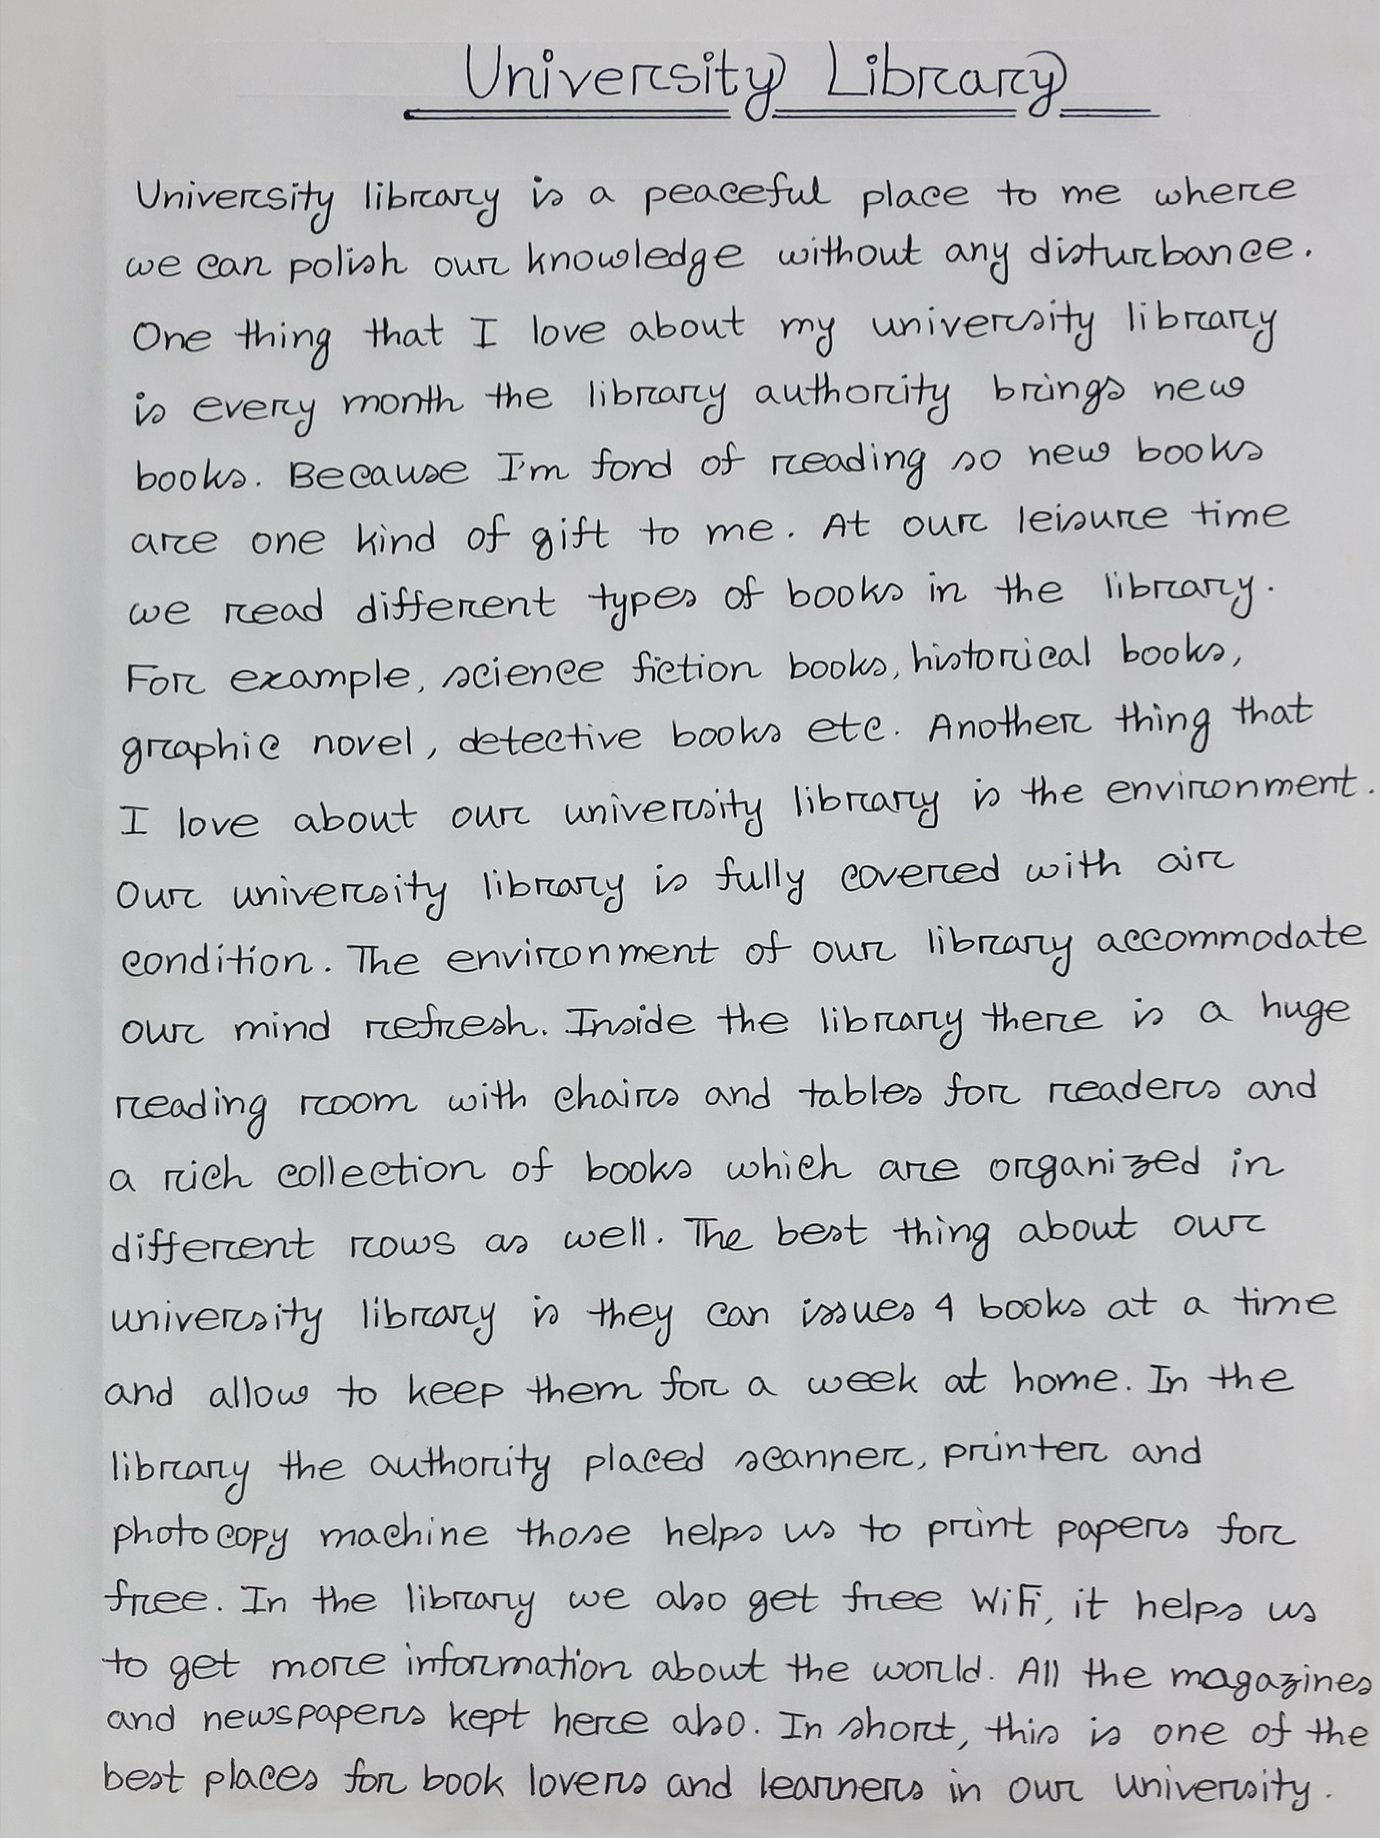 University Library
University library is a peaceful place to me where
we can polish our knowledge without any disturbance.
One thing that I love about my university library
is every month the library authority brings new
books. Because I'm fond of reading so new books
are one kind of gift to me. At our leisure time
we read different types of books in the library.
For example, science fiction books, historical books,
graphic novel, detective books etc. Another thing that
I love about our university library is the environment.
Our university library is fully covered with air
condition. The environment of our library accommodate
our mind refresh. Inside the library there is a huge
reading room with chairs and tables for readers and
a rich collection of books which are organized in
different rows as well. The best thing about our
university library is they can issues 4 books at a time
and allow to keep them for a week at home. In the
library the authority placed scanner, printer and
photocopy machine those helps us to print papers for
free. In the library we also get free WiFi, it helps us
to get more information about the world. All the magazines
and newspapers kept here also. In short, this is one of the
best places for book lovers and learners in our university.